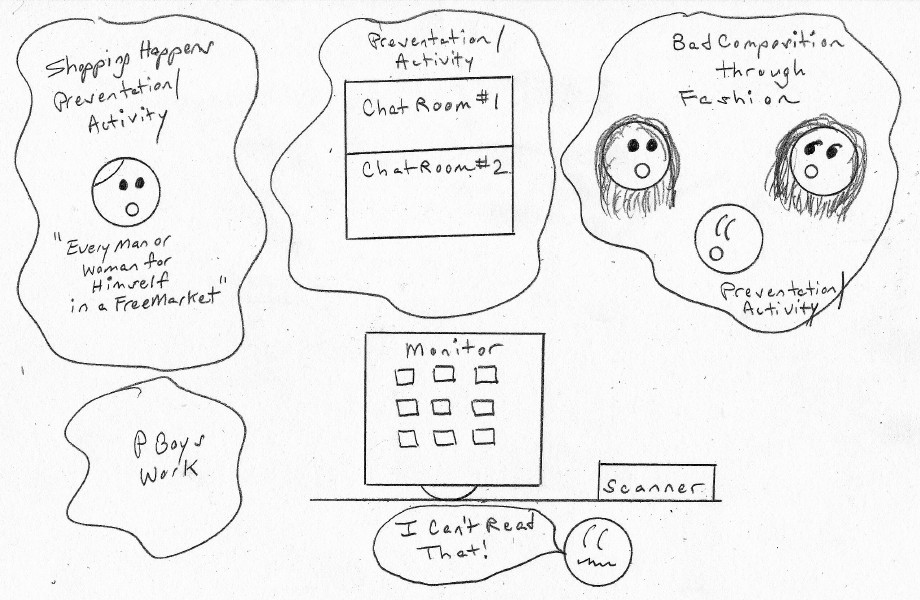 Shopping Happens
Preventation/
Activity
"Every Man or
Woman for
Himself
in a FreeMarket"
Preventation/
Activity
Chat Room #1
Chat Room #2
Bad Composition
through
Fashion
Preventation/
Activity/
P Boys
Work
Monitor
Scanner
I Can't Read
That!